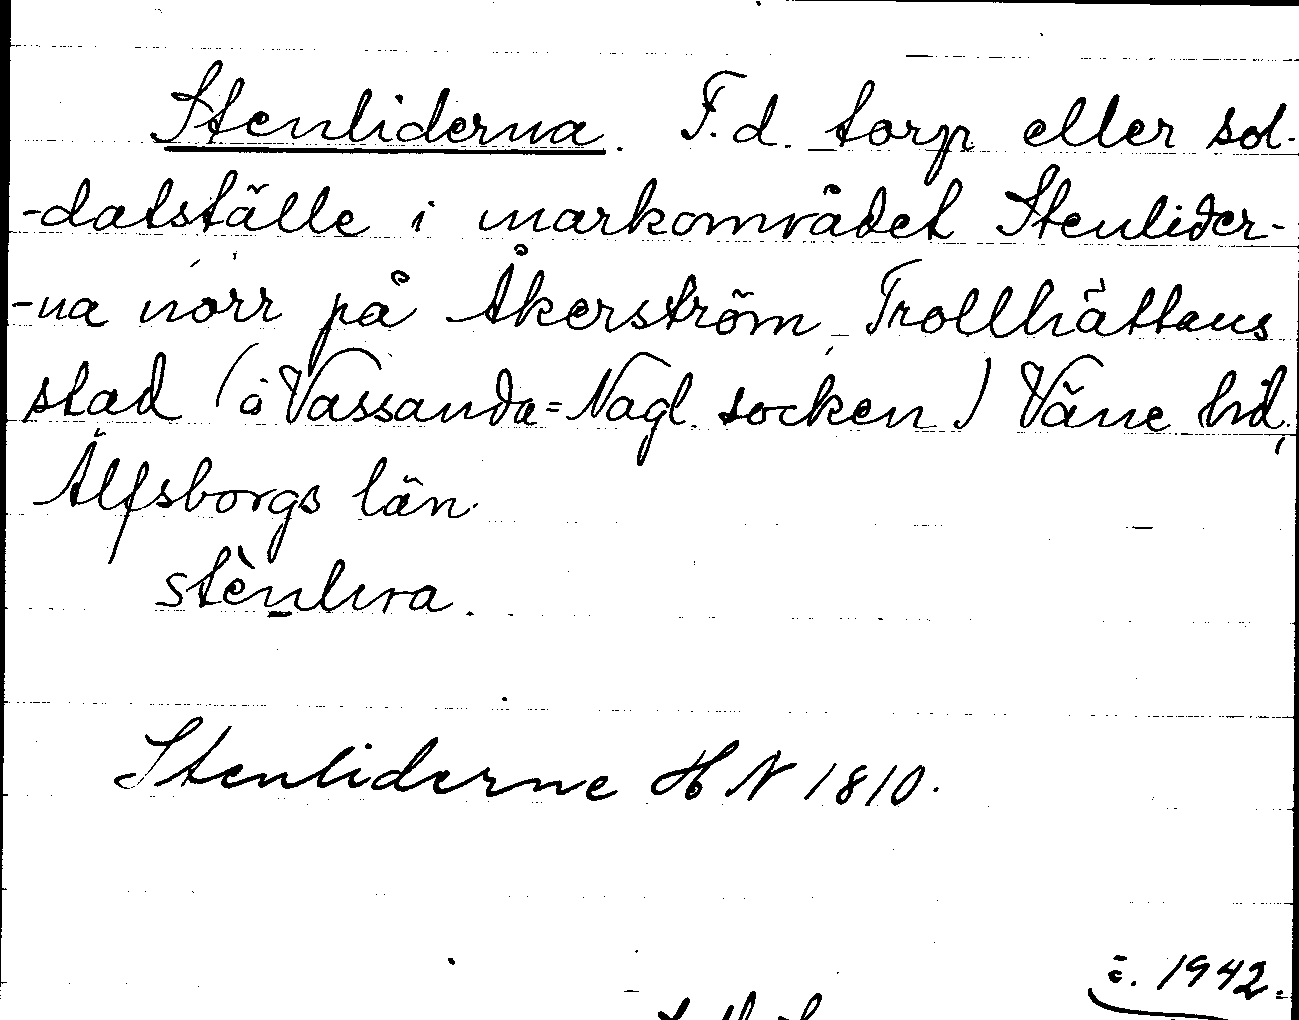 Stenliderna. F.d. torp eller sol-
-datställe i markområdet Stenlider-
-na norr på Åkerström, Trollhättans
stad (å Vassanda=Nagl. socken) Väne hd,
Älfsborgs län.
stènlıra.
Stenliderne HN 1810.
1942.